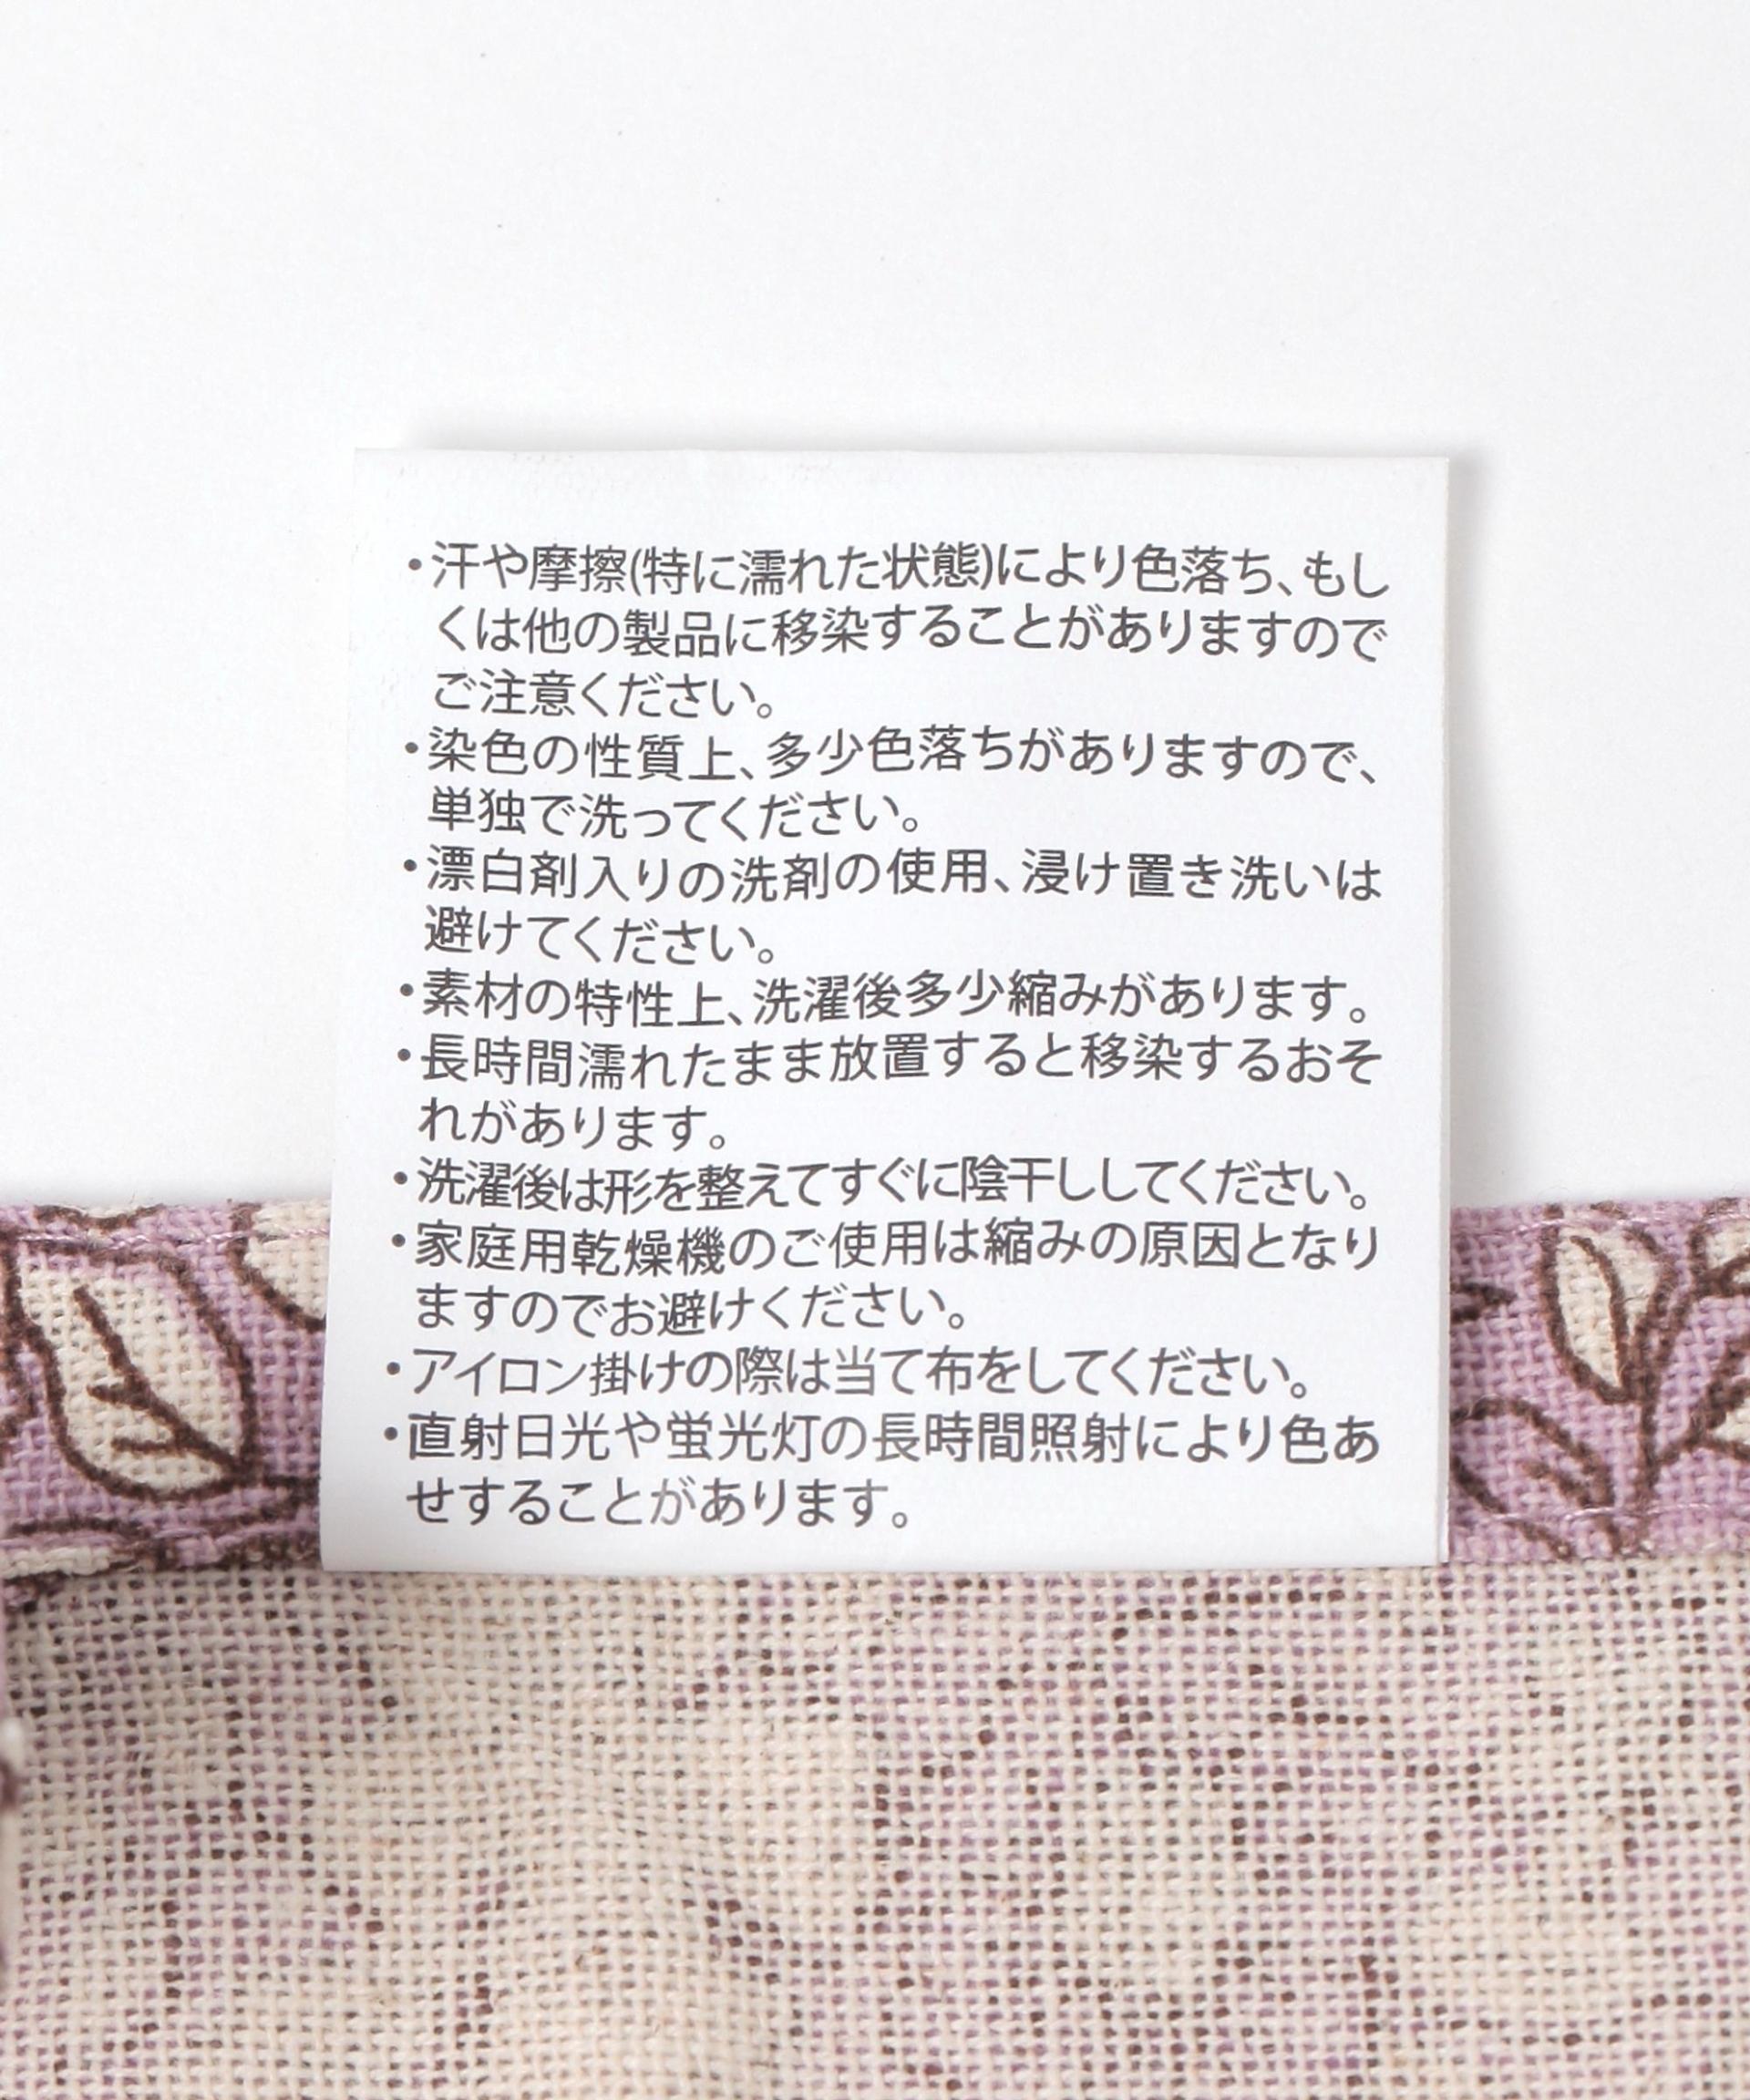 ・汗や摩擦(特に濡れた状態)により色落ち、もし
くは他の製品に移染することがありますので
ご注意ください。
・染色の性質上、多少色落ちがありますので、
単独で洗ってください。
・漂白剤入りの洗剤の使用、浸け置き洗いは
避けてください。
・素材の特性上、洗濯後多少縮みがあります。
・長時間濡れたまま放置すると移染するおそ
れがあります。
・洗濯後は形を整えてすぐに陰干ししてください。
・家庭用乾燥機のご使用は縮みの原因となり
ますのでお避けください。
・アイロン掛けの際は当て布をしてください。
・直射日光や蛍光灯の長時間照射により色あ
せすることがあります。